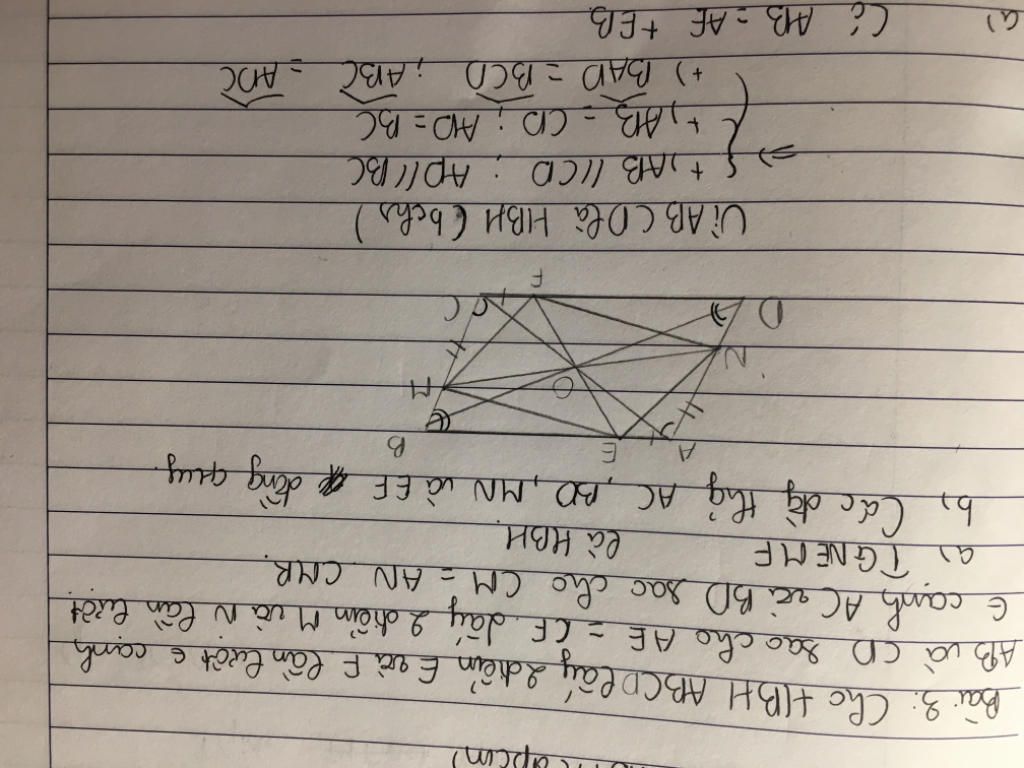 đpcm)
Bài 3: Cho HBH ABCD lấy 2 điểm E và F lần lượt ∈ cạnh
AB và CD sao cho AE = CF. Lấy 2 điểm M và N lần lượt
∈ cạnh AC và BD sao cho CM = AN. CMR
a) TGNEMF là HBH
b) Các đg thg AC, BD, MN và EF đồng quy.
A E B
N O M
D F C
Vì ABCD là HBH (bchs)
=> { +, AB // CD ; AD // BC
+, AB = CD ; AD = BC
+) BAD = BCD ; ABC = ADC
a) Có AB = AE + EB